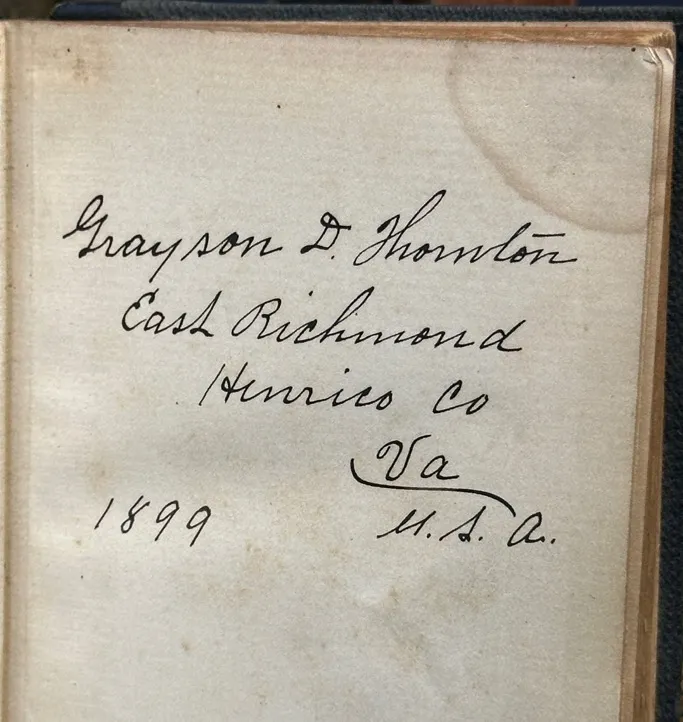 Grayson D. Thornton
East Richmond
Henrico Co
Va
1899 U.S.A.